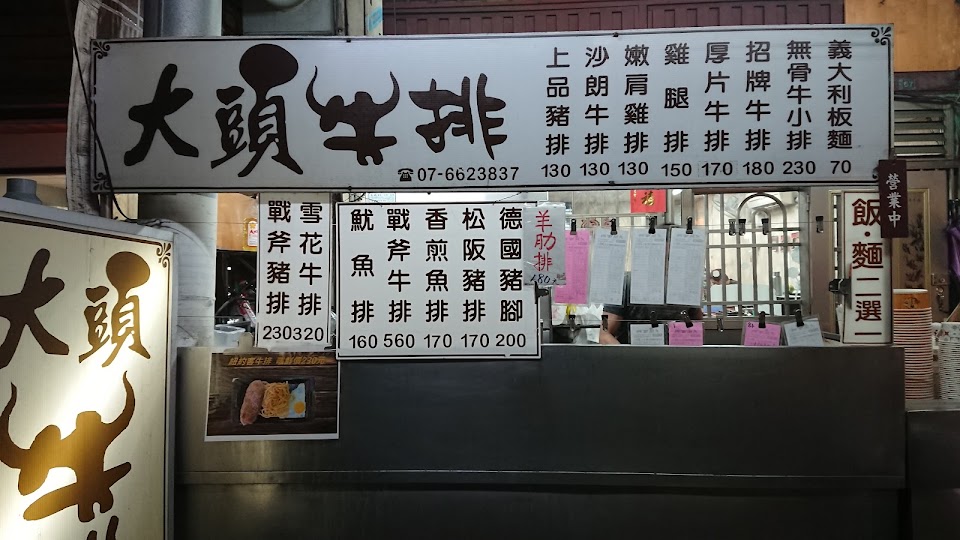 大頭牛排
☎07-6623837
上品豬排 130
沙朗牛排 130
嫩肩雞排 130
雞腿排 150
厚片牛排 170
招牌牛排 180
無骨牛小排 230
義大利板麵 70
營業中
戰斧豬排 230
雪花牛排 320
魷魚排 160
戰斧牛排 560
香煎魚排 170
松阪豬排 170
德國豬腳 200
羊肋排 180
飯·麵二選一
紐約客牛排
大頭牛